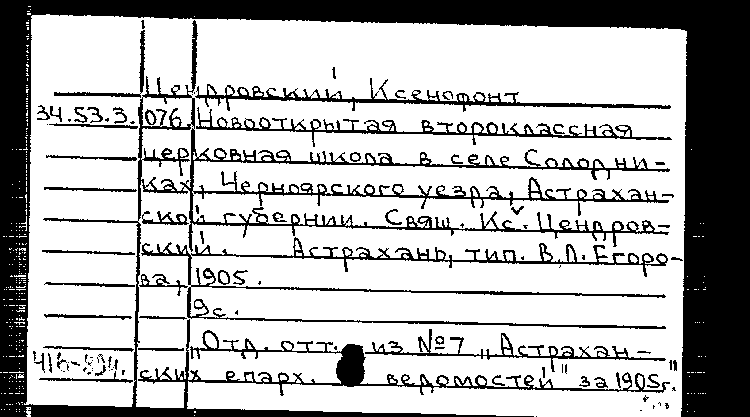 Цендровский, Ксенофонт
34.53.3.076. Новооткрытая второклассная
церковная школа в селе Солодни-
ках, Черноярского уезда, Астрахан-
ской губернии. Свящ. Кс. Цендров-
ский. Астрахань, тип. В.Л. Егоро-
ва, 1905.
9с.
„Отд. отт. из №7 „Астрахан-
416-894. ских епарх. ведомостей" за 1905г."